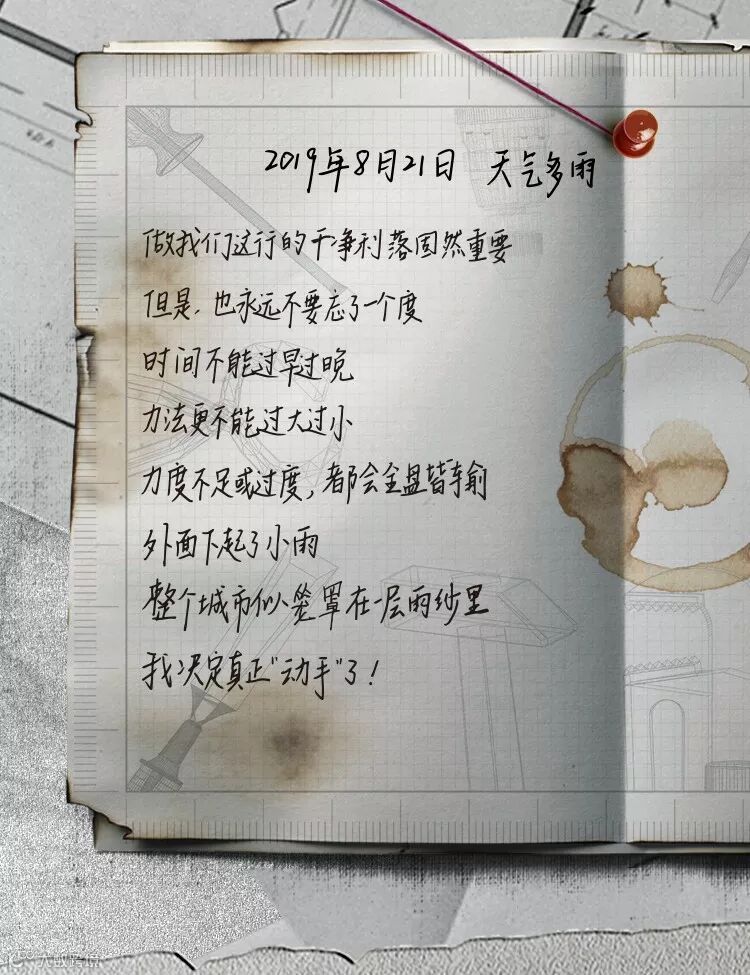 2019年8月21日 天气多雨
做我们这行的干净利落固然重要
但是,也永远不要忘了一个度
时间不能过早过晚
力法更不能过大过小
力度不足或过度,都会全盘皆输
外面下起了小雨
整个城市似笼罩在一层雨纱里
我决定真正"动手"了!
大数跨境